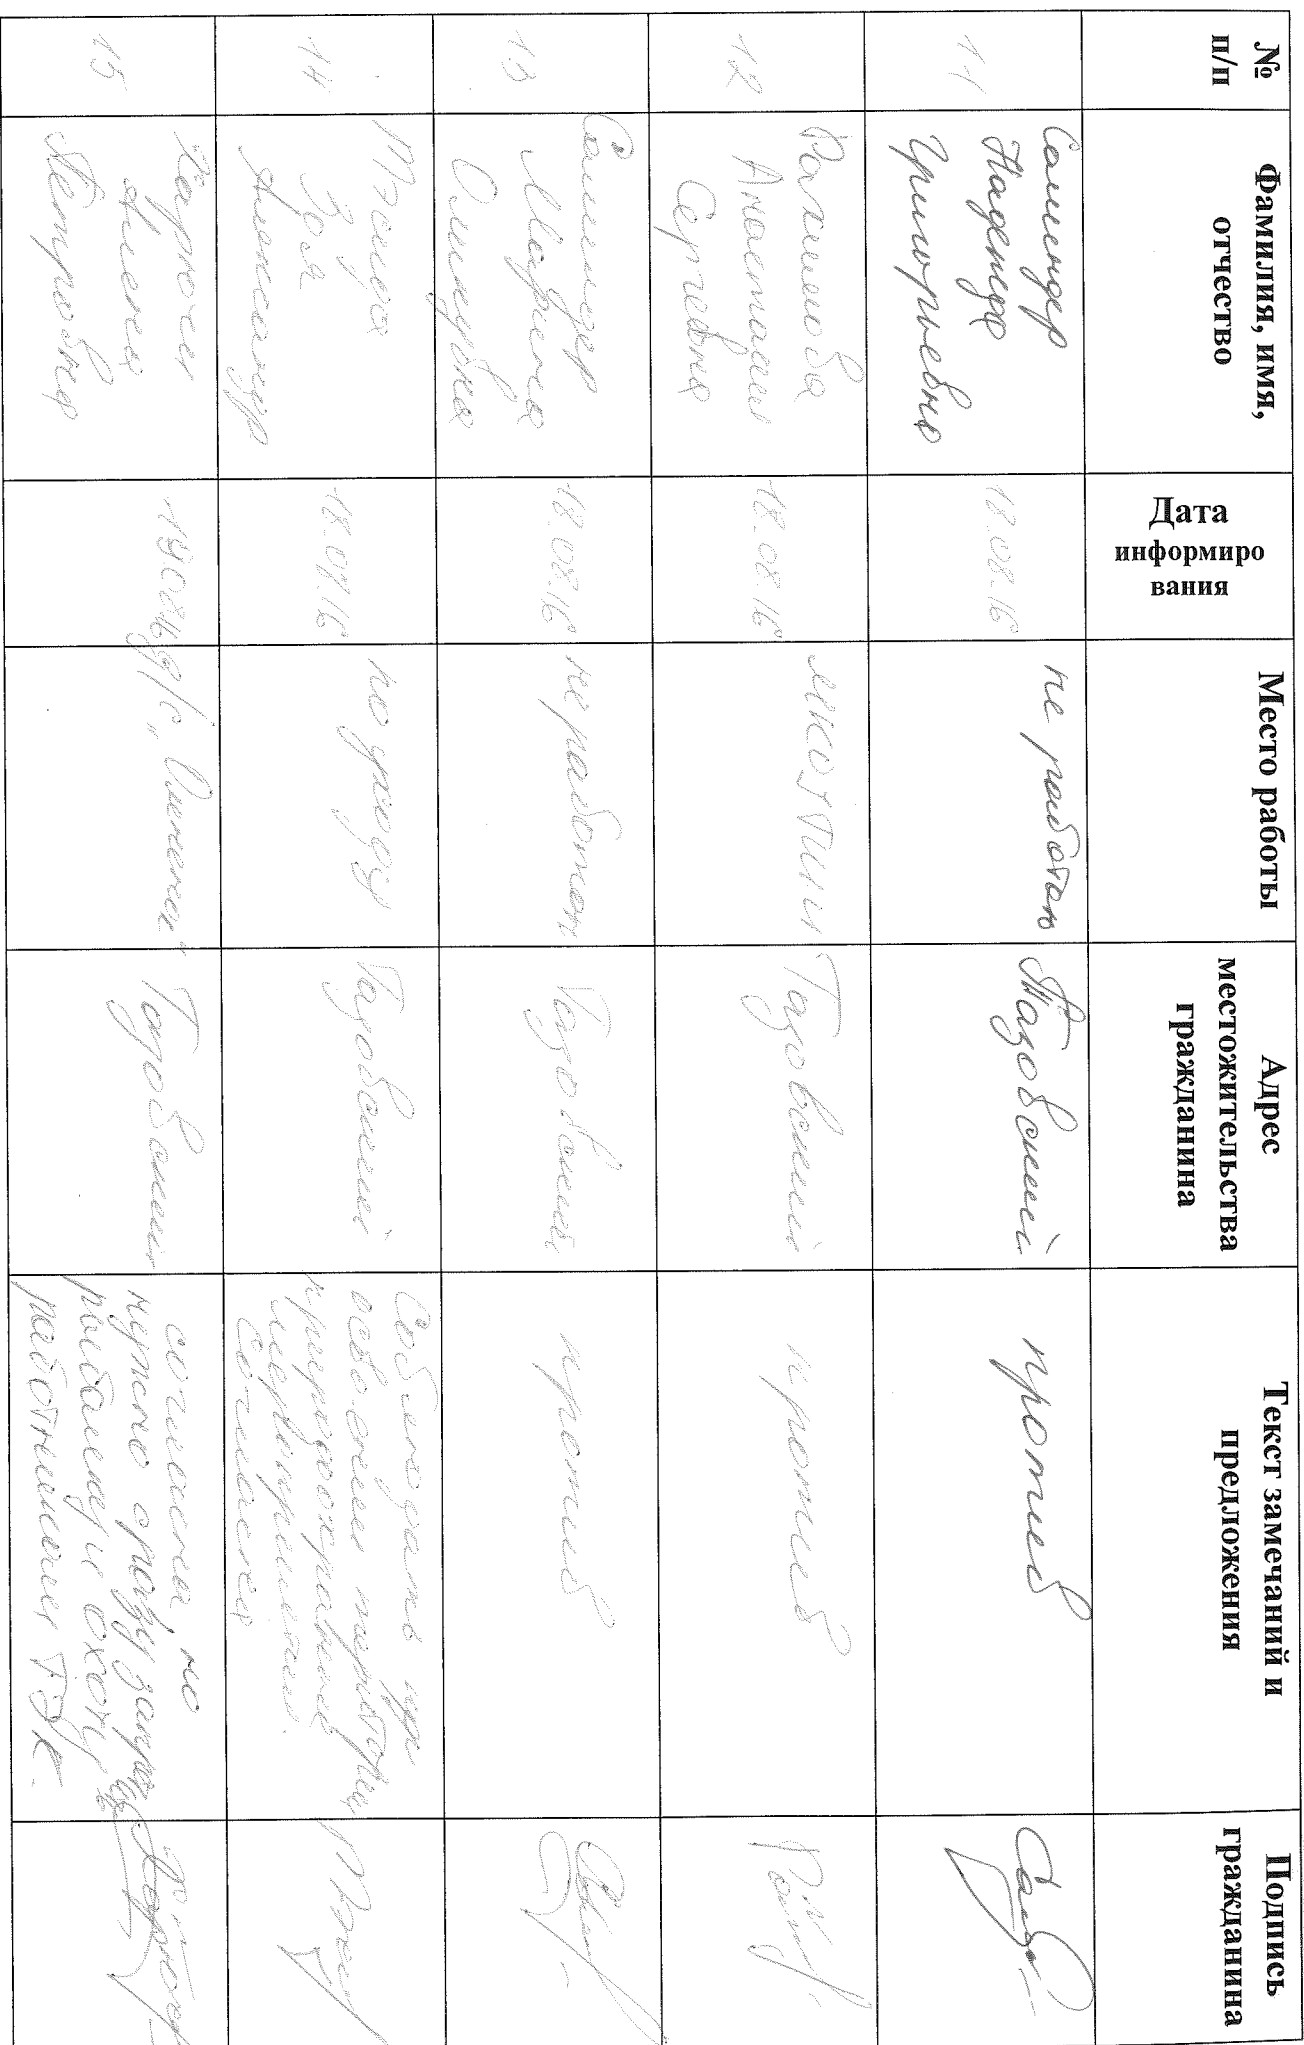 №
п/п
Фамилия, имя,
отчество
Дата
информиро
вания
Место работы
Адрес
местожительства
гражданина
Текст замечаний и
предложения
Подпись
гражданина
11
Салиндер
Надежда
Григорьевна
18.08.16
не работаю
Тазовский
против
12
Анастасия
Сергеевна
18.08.16
Тазовский
против
13
Салиндер
Марина
18.08.16
не работаю
Тазовский
против
14
Зоя
18.08.16
по уходу
Тазовский
Соблюдать при
освоении
природоохранные
мероприятия.
Согласна
15
Алена
Петровна
19.08.16
д/с „Олененок“
Тазовский
согласна но
нужно сразу запре
рыбалку и охоту
работниками ТЭК.